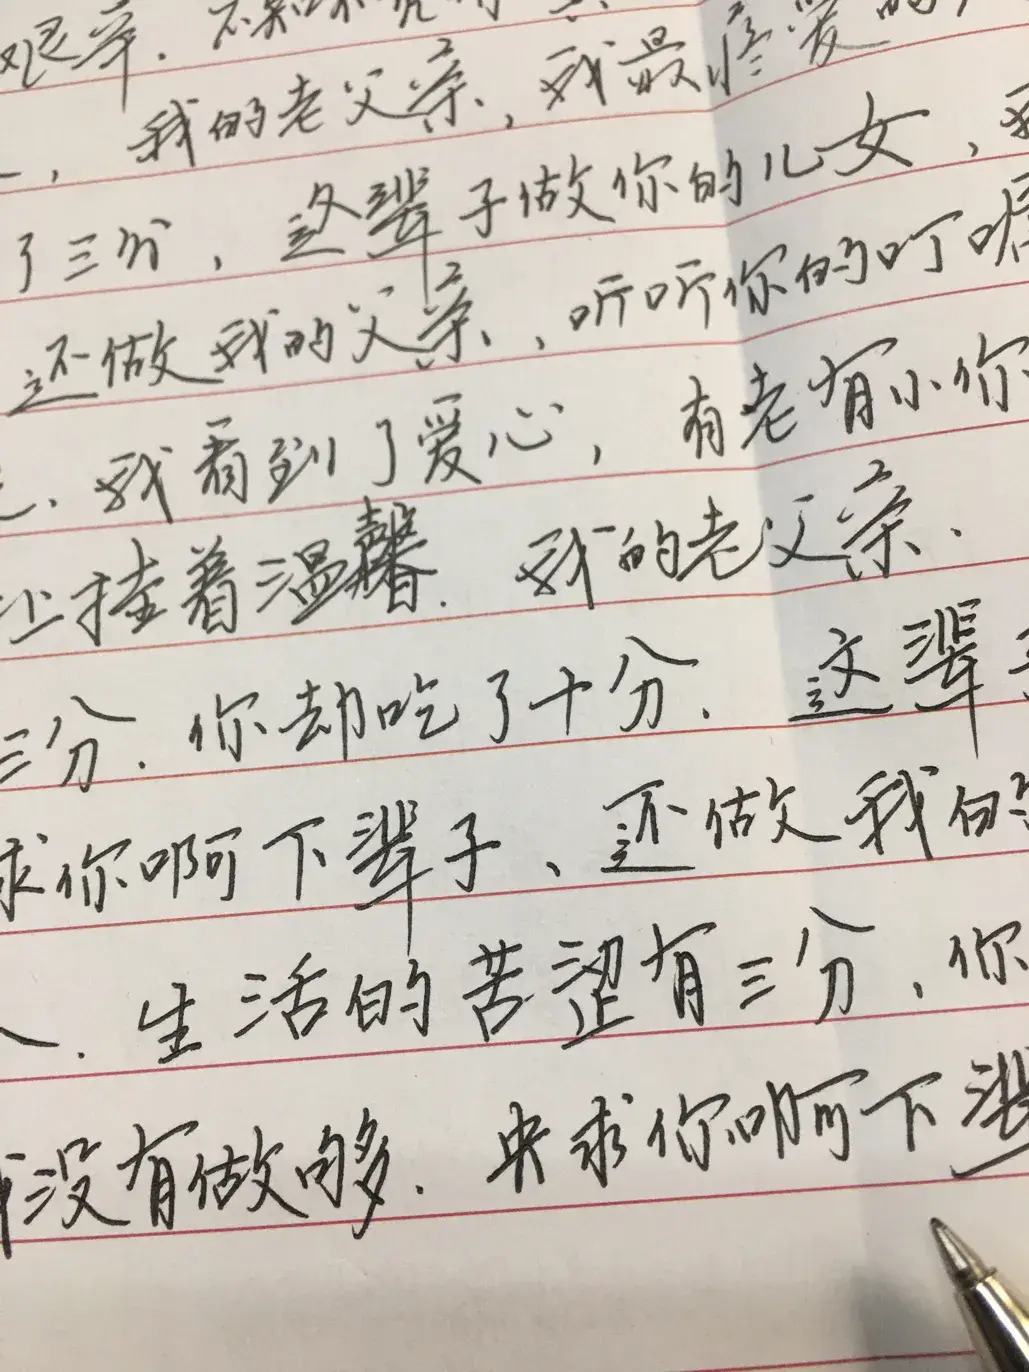 艰辛.不知不觉
,我的老父亲、我最疼爱的
了三分,这辈子做你的儿女,我
还做我的父亲、听听你的叮嘱
.我看到了爱心,有老有小你
上挂着温馨.我的老父亲、
三分.你却吃了十分.这辈子
求你啊下辈子、还做我的
人.生活的苦涩有三分、你
我没有做够.央求你啊下辈